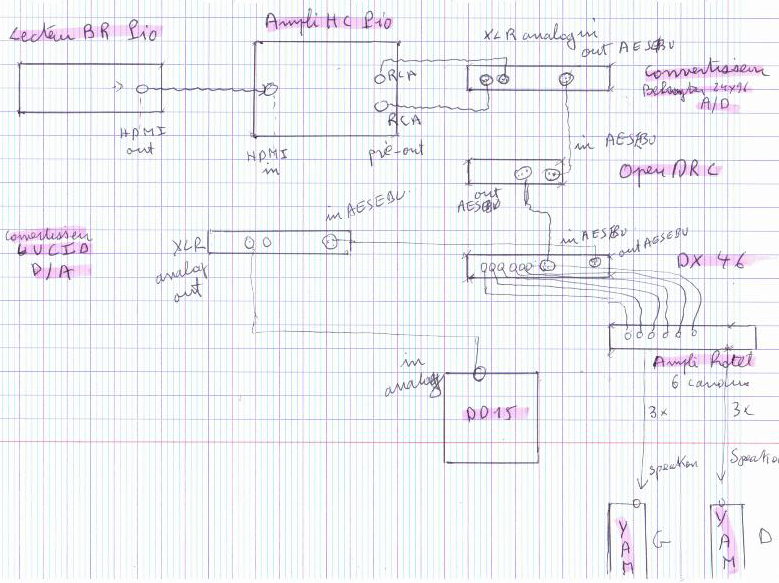 Lecteur BR Pio
Ampli HC Pio
HDMI
out
HDMI
in
RCA
RCA
pré-out
XLR analog in
out AESEBU
Convertisseur
24x96
A/D
in AESEBU
Open DRC
out
AESEBU
in AESEBU
out AESEBU
DX 46
Convertisseur
LUCID
D/A
XLR
analog
out
in AESEBU
in
analog
DD15
Ampli Rotel
6 canaux
3x
3x
speaker
Speaker
YAM
G
YAM
D